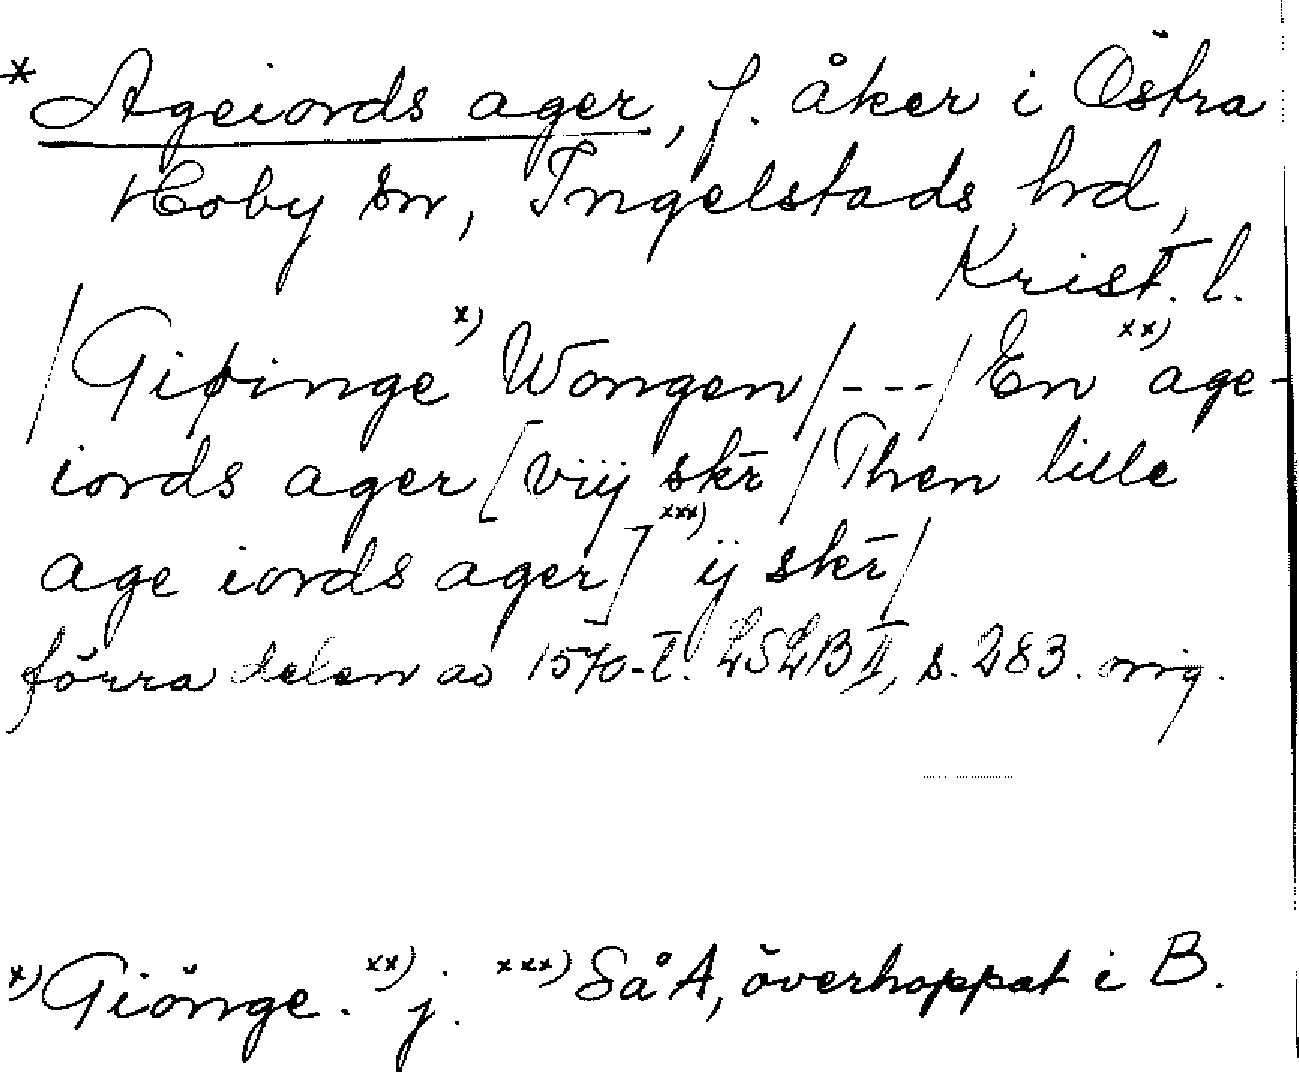 * Ageiords ager, f. åker i Östra
Hoby sn, Ingelstads hrd,
Krist. l.
/Giøinge x) Wongen/---/En xx) age-
iords ager [viij skr̄ /Then lille
age iords ager] xxx) ij skr̄/
förra delen av 1570-t. LSLB II, s. 283. orig.
x) Giönge. xx) j. xxx) Så A, överhoppat i B.